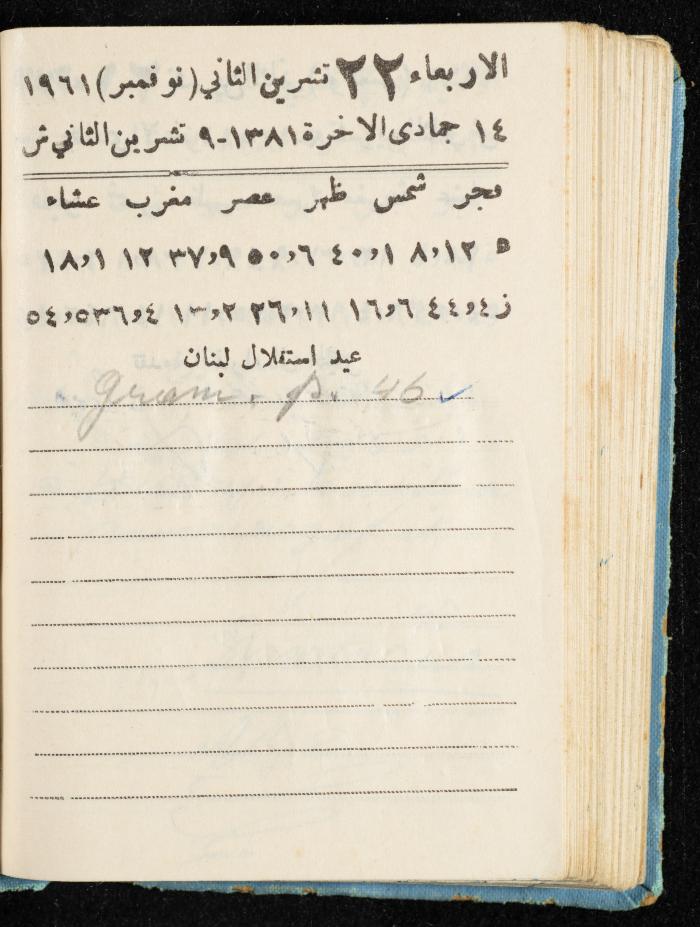 الاربعاء ٢٢ تشرين الثاني (نوفمبر) ١٩٦١
١٤ جمادى الاخرة ١٣٨١-٩ تشرين الثاني ش
فجر شمس ظهر عصر مغرب عشاء
٥ ٨,١٢ ٤٠,١ ٥٠,٦ ٣٧,٩ ١٢ ١٨,١
ز ٤٤,٤ ١٦,٦ ٢٦,١١ ١٣,٢ ٣٦,٤ ٥٤,٥
عيد استقلال لبنان
gram. p. 46 ✓